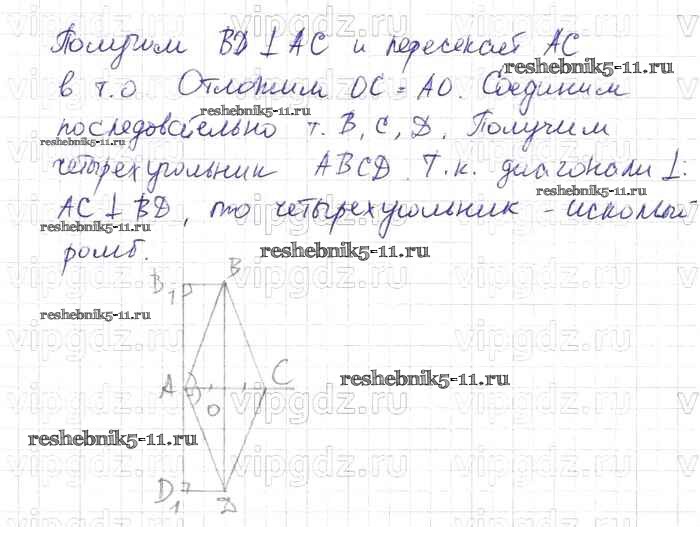 Получим BD ⊥ AC и пересекает AC
в т.О. Отложим OC = AO. Соединим
последовательно т. B, C, D. Получим
четырехугольник ABCD. Т.к. диагонали ⊥:
AC ⊥ BD, то четырехугольник - искомый
ромб.
reshebnik5-11.ru
reshebnik5-11.ru
reshebnik5-11.ru
reshebnik5-11.ru
reshebnik5-11.ru
reshebnik5-11.ru
reshebnik5-11.ru
reshebnik5-11.ru
reshebnik5-11.ru
vipgdz.ru
B₁ B
A O C
D₁ D